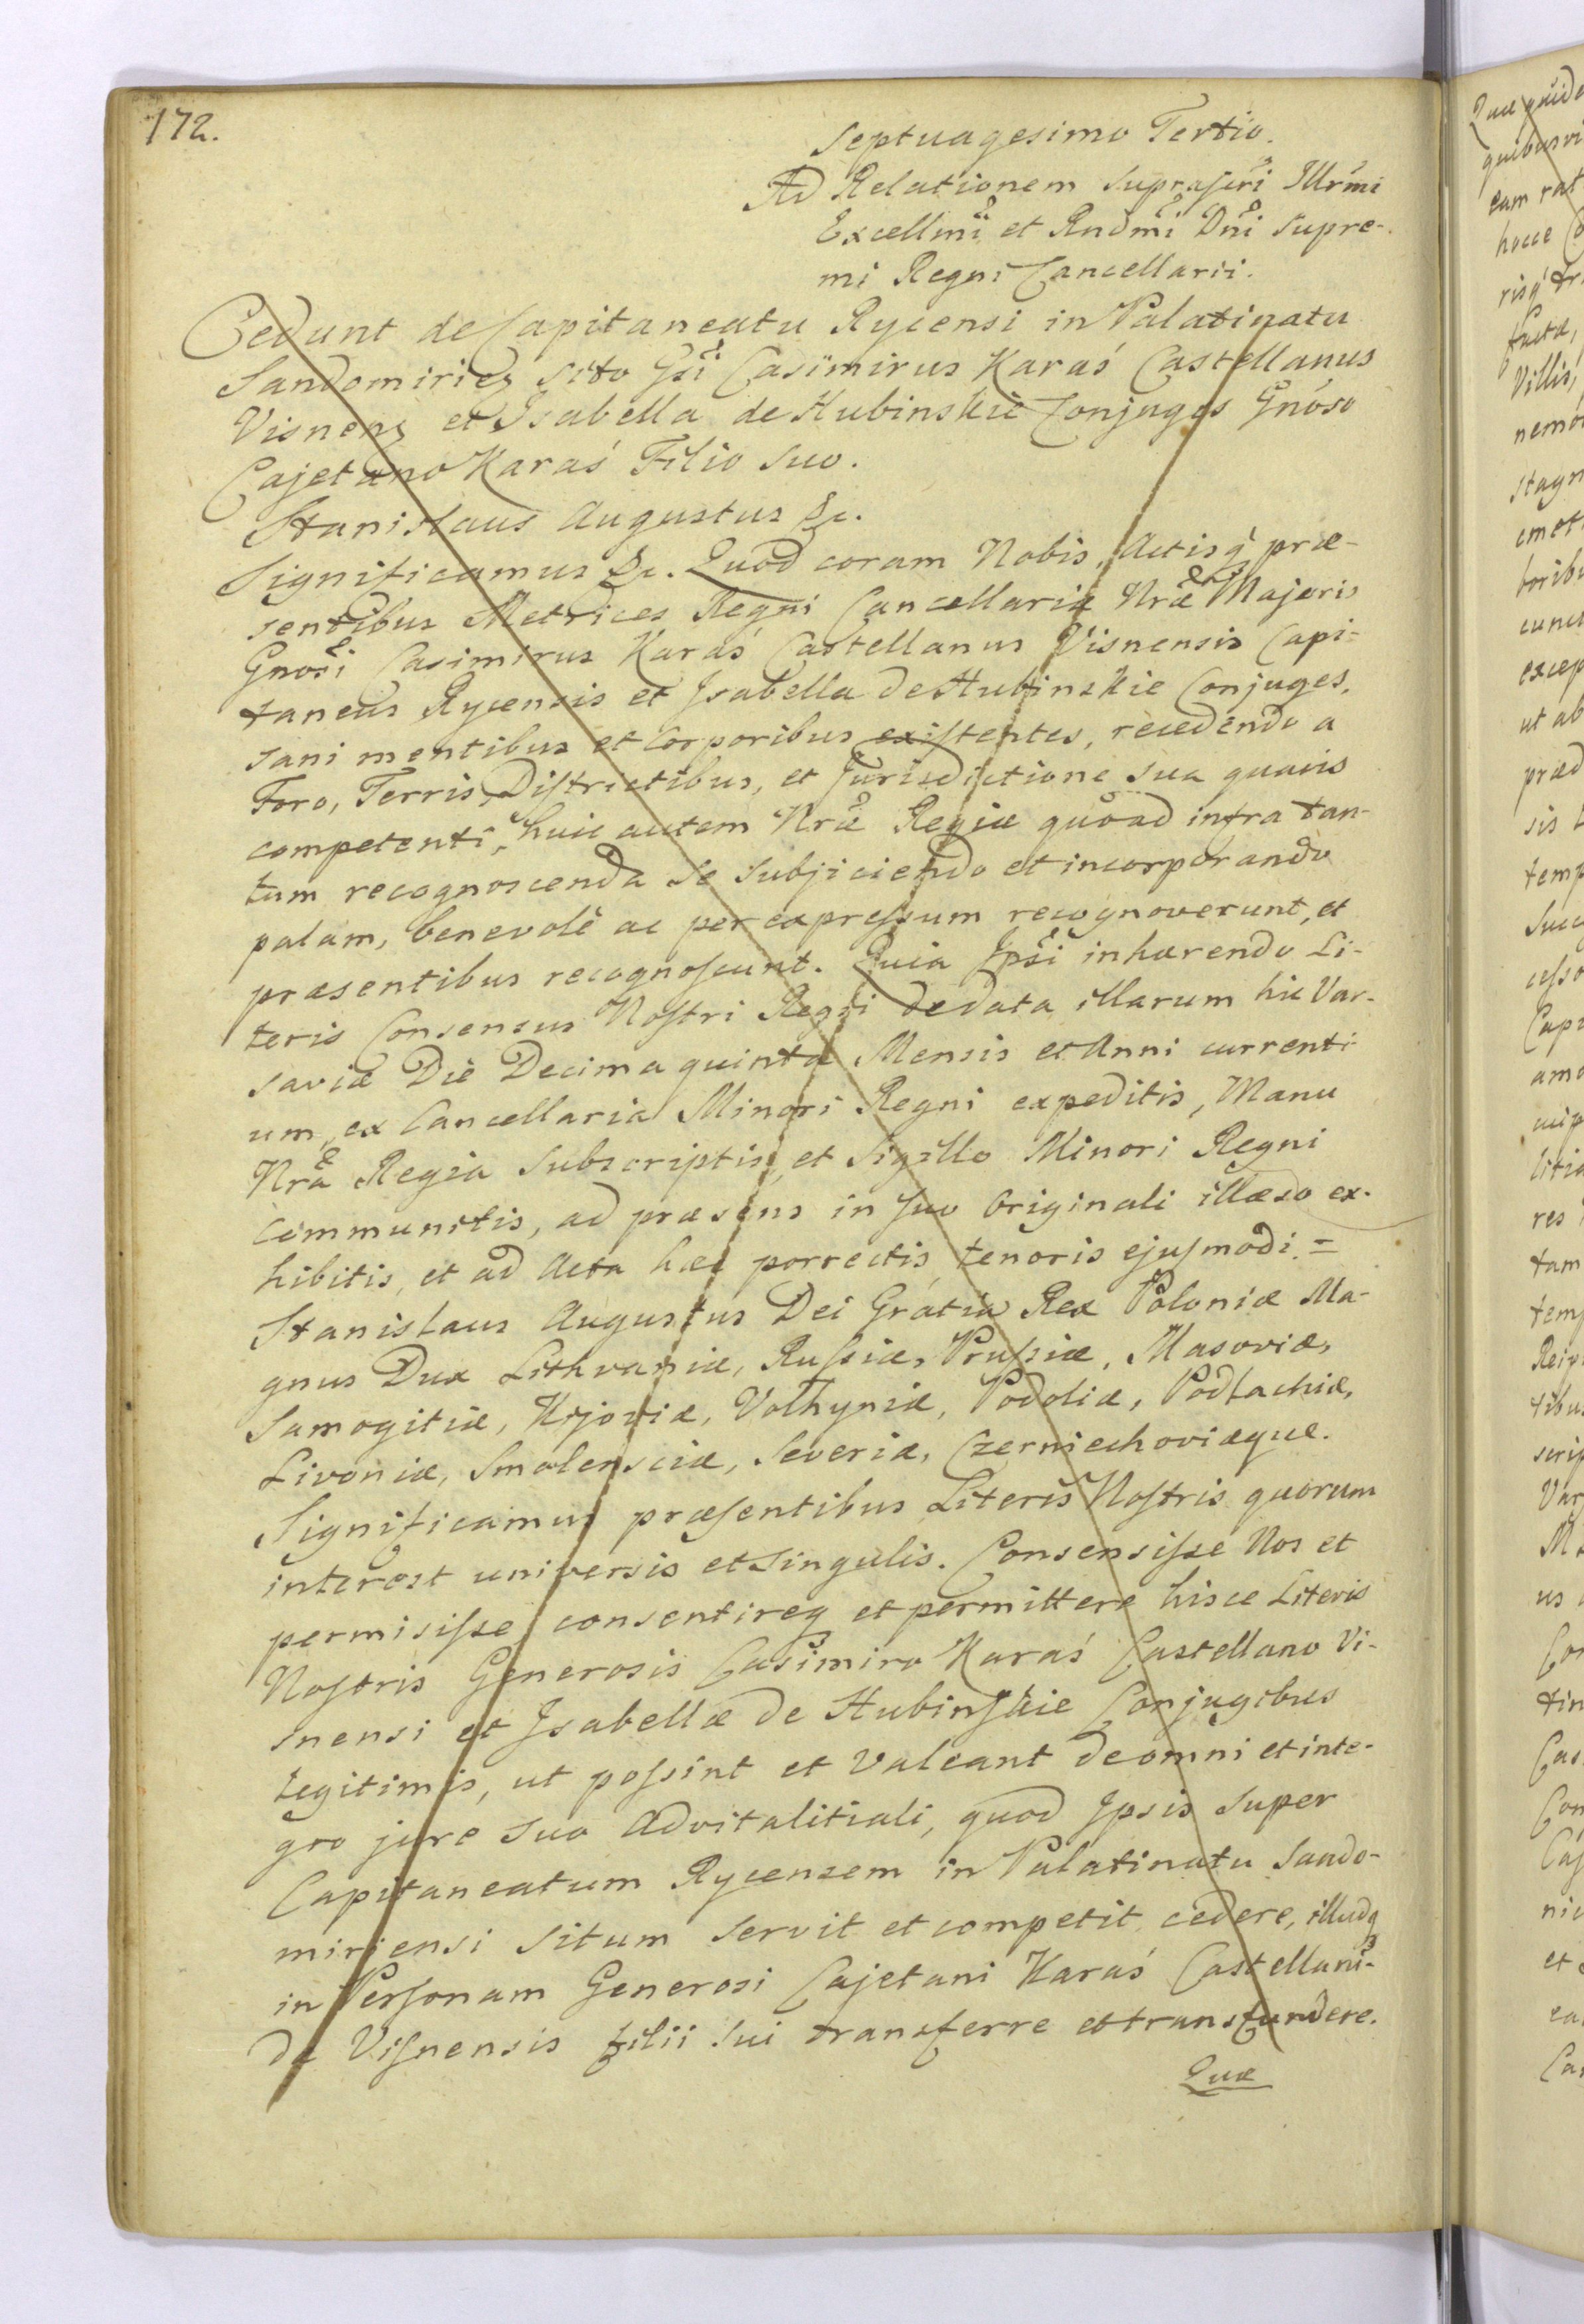 172.
Septuagesimo Tertio.
Ad Relationem suprascri Illrmi
Excellmi et Rndmi Dni Supre-
mi Regni Cancellarii.
Cedunt de Capitaneatu Rycensi in Palatinatu
Sandomirien sito Gsi Casimirus Karaś Castellanus
Visnens et Isabella de Hubinskie Conjuges Gnoso
Cajetano Karaś Filio suo.
Stanislaus Augustus &c.
Significamus &c. Quod coram Nobis, Actisq́ præ-
sentibus Metrices Regni Cancellariæ Nræ Majoris
Gnosi Casimirus Karaś Castellanus Visnensis Capi-
taneus Rycensis et Isabella de Hubinskie Conjuges,
sani mentibus et Corporibus existentes, recedendo a
Foro, Terris, Districtibus, et Jurisdictione sua quavis
competenti, huic autem Nræ Regiæ quoad infra tan-
tum recognoscenda se subjiciendo et incorporando
palam, benevolè ac per expressum recognoverunt, et
præsentibus recognoscunt. Quia Ipsi inhærendo Li-
teris Consensus Nostri Regii de data illarum hic Var-
saviæ Die Decima quinta Mensis et Anni currenti-
um, ex Cancellaria Minori Regni expeditis, Manu
Nra Regia subscriptis, et Sigillo Minori Regni
communitis, ad præsens in suo Originali illæso ex-
hibitis, et ad Acta hæc porrectis, tenoris ejusmodi. =
Stanislaus Augustus Dei Gratia Rex Poloniæ Ma-
gnus Dux Lithvaniæ, Russiæ, Prussiæ, Masoviæ,
Samogitiæ, Kijoviæ, Volhyniæ, Podoliæ, Podlachiæ,
Livoniæ, Smolensciæ, Severiæ, Czerniechoviæque.
Significamus præsentibus Literis Nostris quorum
interest universis et singulis. Consensisse Nos et
permisisse consentireq et permittere hisce Literis
Nostris Generosis Casimiro Karaś Castellano Vi-
snensi et Isabellæ de Hubinskie Conjugibus
legitimis, ut possint et valeant de omni et inte-
gro jure suo Advitalitiali, quod Ipsis super
Capitaneatum Rycensem in Palatinatu Sando-
miriensi situm servit et competit, cedere, illudq
in Personam Generosi Cajetani Karaś Castellani-
dæ Visnensis filii sui transferre et transfundere.
Quæ